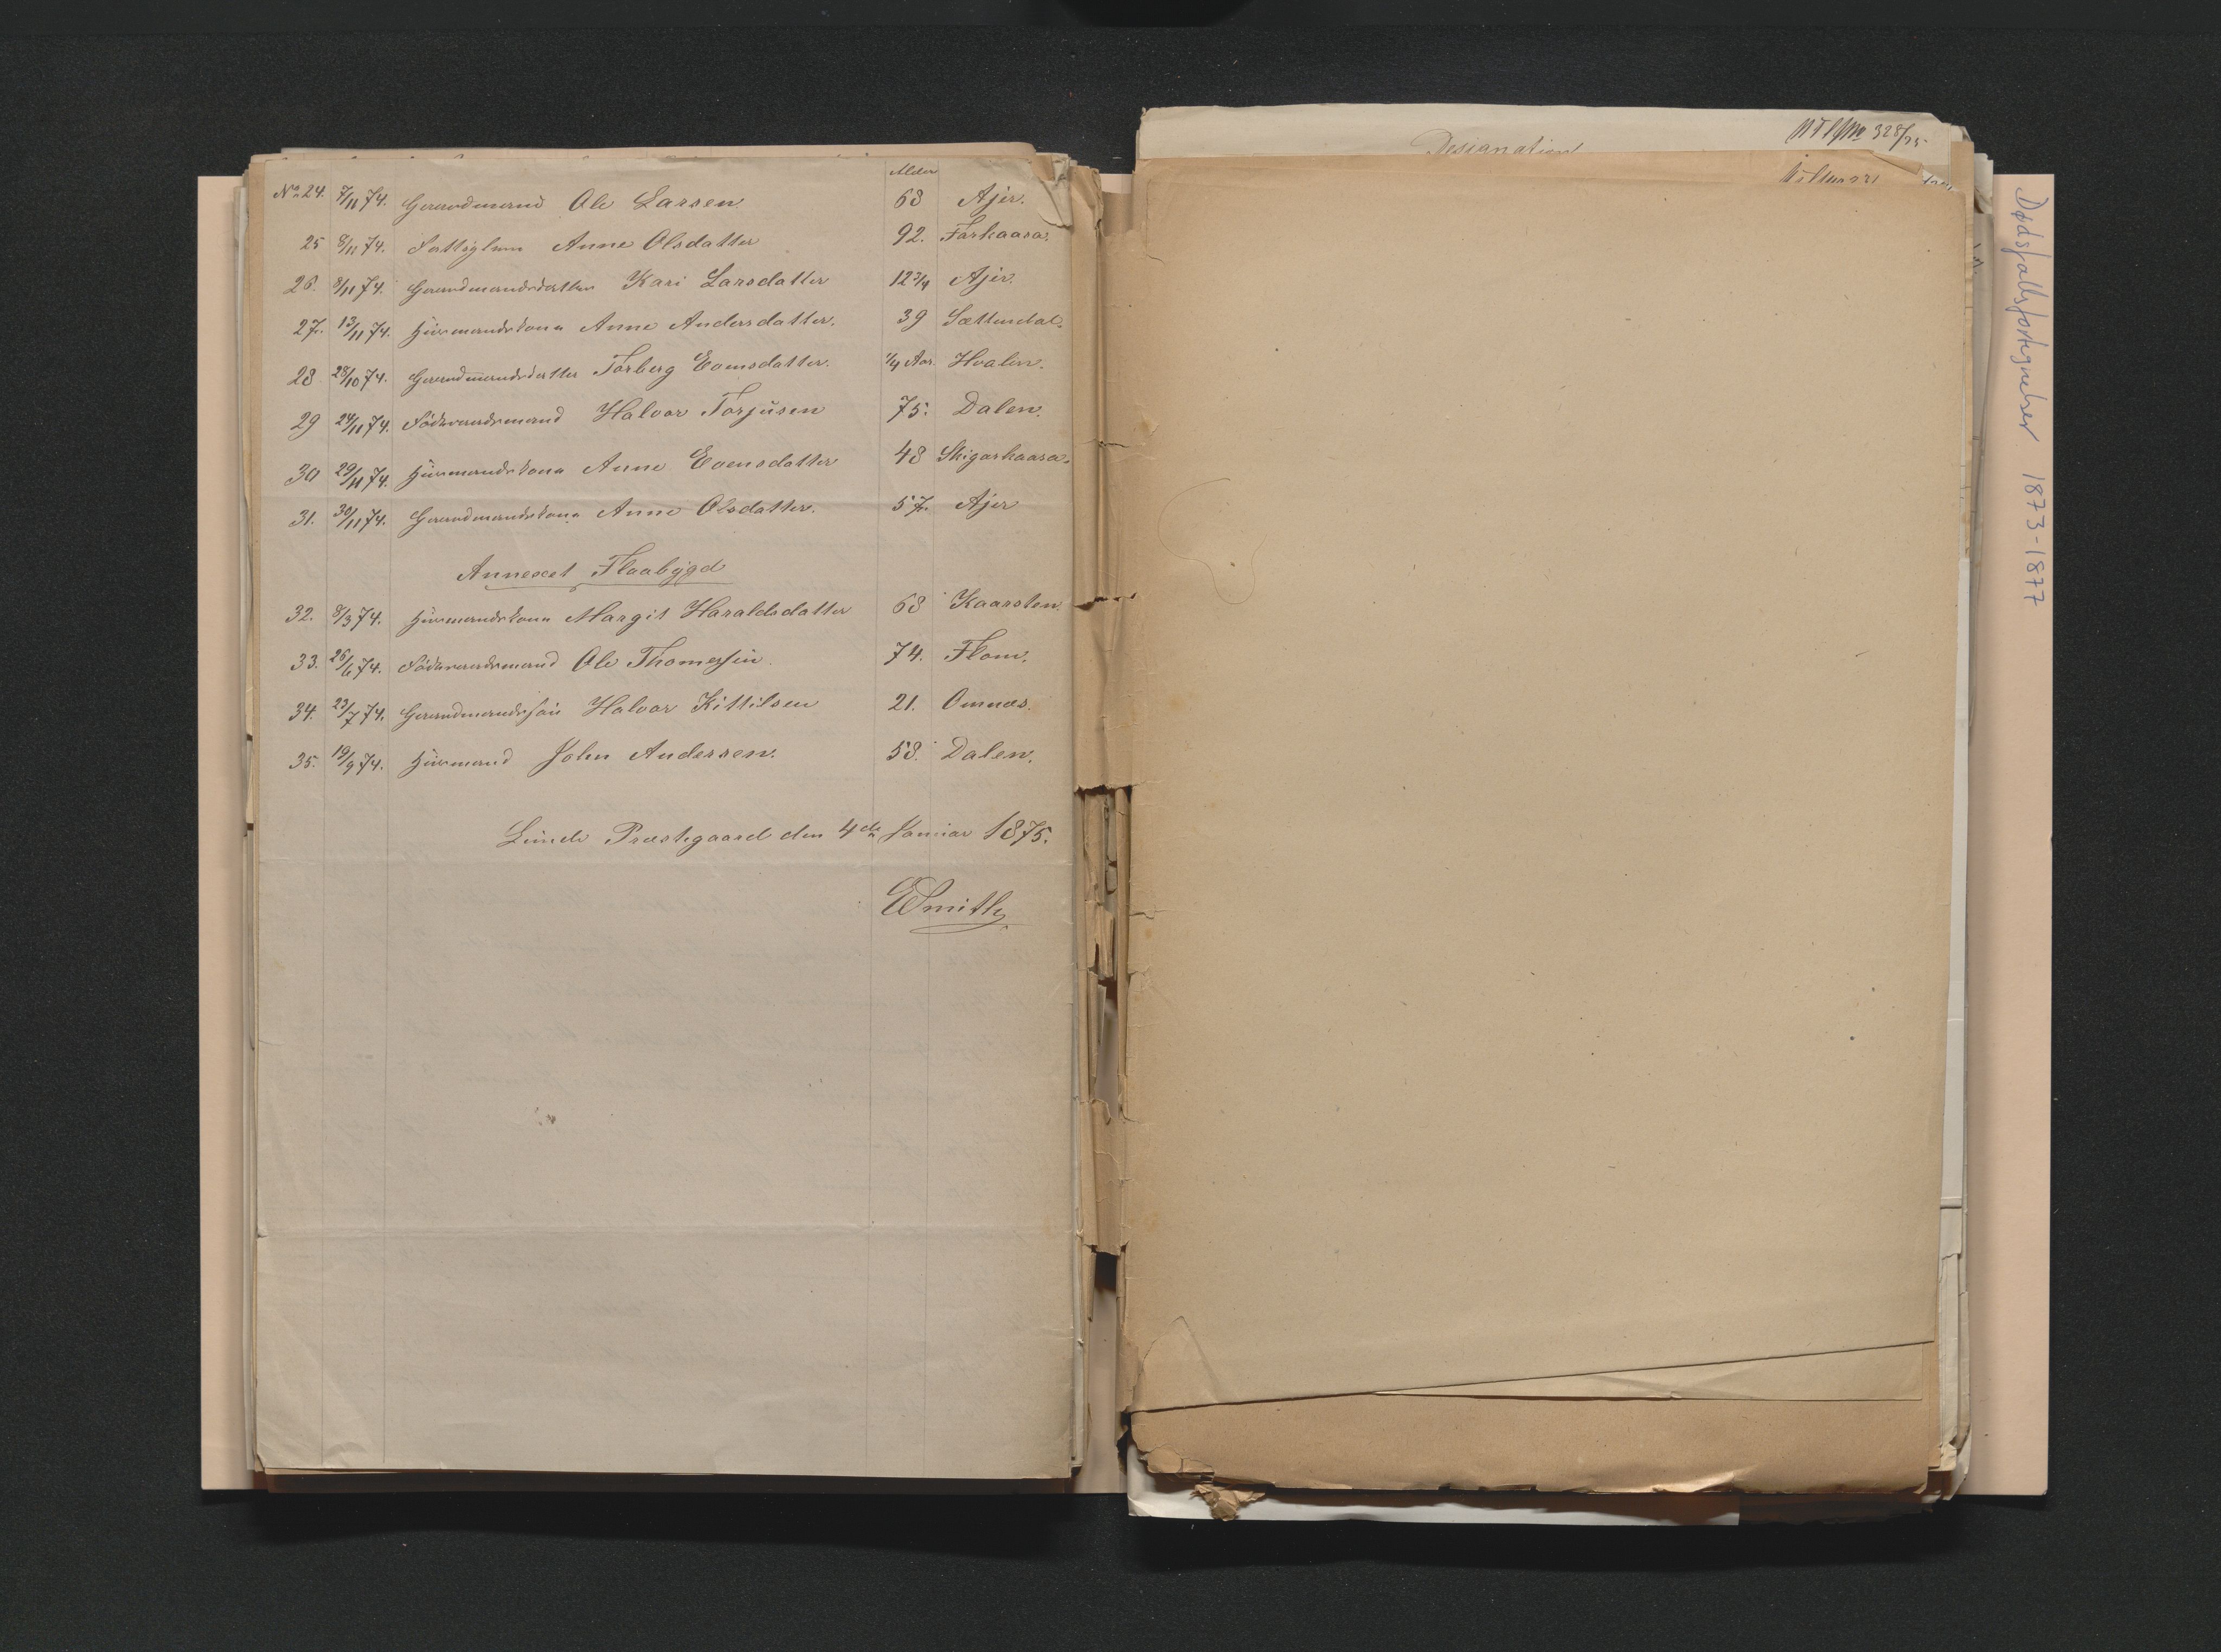 Alder
No 24. 7/11 74. Gaardmand Ole Larsen 68 Ajer.
25 8/11 74. Fattiglem Anne Olsdatter 92. Farkaasa.
26. 8/11 74. Gaardmandsdatter Kari Larsdatter 12 3/4 Ajer.
27. 13/11 74. Huusmandskone Anne Andersdatter. 39 Sættendal.
28 28/10 74. Gaardmandsdatter Torberg Evensdatter. 1/4 Aar. Hvalen.
29 24/11 74. Föderaadsmand Halvor Torjusen 75. Dalen.
30 29/11 74. Huusmandskone Anne Evensdatter 48 Skigarkaasa.
31. 30/11 74. Gaardmandskone Anne Olsdatter. 57. Ajer
Annexet Flaabygd
32. 8/3 74. Huusmandskone Margit Haraldsdatter 68 Kaarsten.
33. 26/6 74. Föderaadsmand Ole Thomessen 74. Flom.
34. 23/7 74. Gaardmandssön Halvor Kittilsen 21. Omnæs.
35. 19/9 74. Huusmand John Andersen. 58. Dalen.
Lunde Præstegaard den 4de Januar 1875.
ESmith
Designation
328/75
Dødsfallsfortegnelser 1873-1877